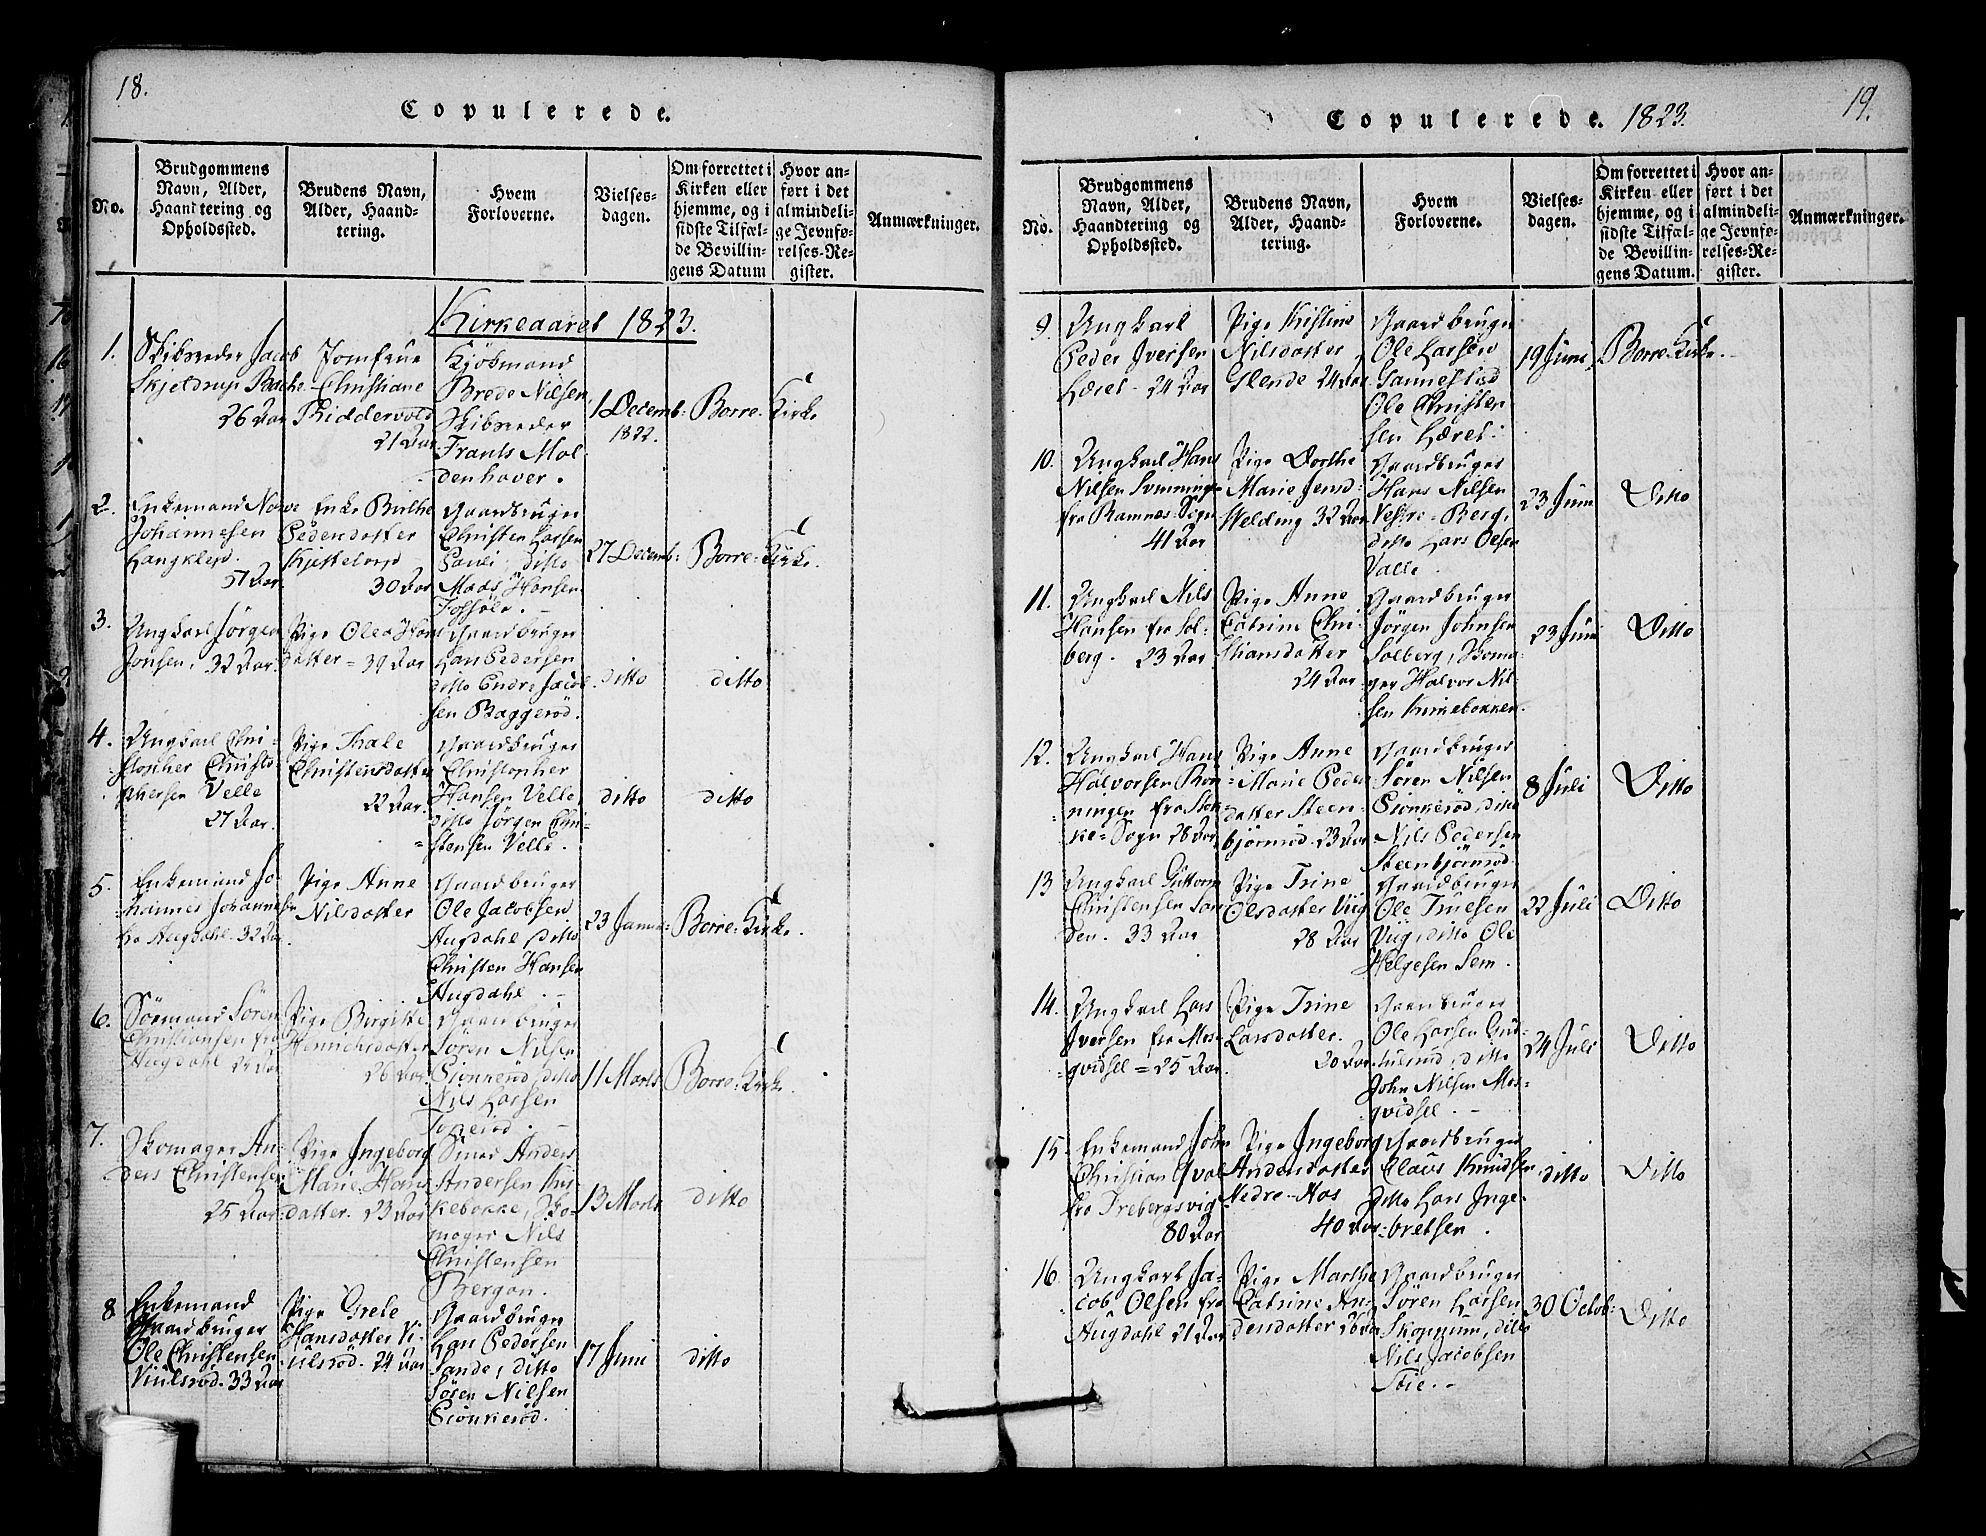 18.
Copulerede.
No.
Brudgommens
Navn, Alder,
Haandtering og
Opholdssted.
Brudens Navn,
Alder, Haand-
tering.
Hvem
Forloverne.
Vielses-
dagen.
Om forrettet i
Kirken eller
hjemme, og i
sidste Tilfæl-
de Bevillin-
gens Datum
Hvor an-
ført i det
almindeli-
ge Jevnfø-
relses-Re-
gister.
Anmærkninger.
Kirkeaaret 1823.
1.
Skibsreder Jacob
Skjeldrup Bache
26 Aar
Jomfrue
Christiane
Riddervold
21 Aar
Kjöbmand
Brede Nilsen,
Skibsreder
Frants Mol-
denhover.
1 Decemb:
1822.
Borre-Kirke
2.
Enkemand
Johannesen
Langklep.
57 Aar.
Enke Birthe
Pedersdatter
30 Aar
Gaardbruger
Christen Larsen
ditto
Mads Hansen
27 Decemb:
Borre-Kirke.
3.
Ungkarl Jörgen
Jonsen, 32 Aar.
Pige Olea Hans
datter = 39 Aar
Gaardbruger
Lars Pedersen
ditto Endre Jacob-
sen Baggeröd.
ditto
ditto
4.
Ungkarl Chri-
stopher Christo-
phersen Velle
27 Aar.
Pige Thale
Christensdatter
22 Aar.
Gaardbruger
Christopher
Hansen Velle,
ditto Jörgen Chri-
stensen Velle.
ditto
ditto
5.
Enkemand Jo-
hannes Johannesen
fra Augdahl. 32 Aar
Pige Anne
Nilsdatter
Gaardbruger
Ole Jacobsen
Augdahl, ditto
Christen Hansen
Augdahl. -
23 Januar
Borre-Kirke.
6.
Sören
Christiansen fra
Augdahl
Pige Birgitte
Henrichsdatter
26 Aar.
Gaardbruger
Sören Nilsen
ditto
Nils Larsen
11 Marts
Borre-Kirke.
7.
Skomager An-
ders Christensen
25 Aar
Pige Ingeborg
Marie Hans-
datter. 23 Aar
Anders
Andersen Kir-
kebakke, Sko-
mager Nils
Christensen
Bergan.
13 Marts
ditto
8
Enkemand
Gaardbruger
Ole Christensen
33 Aar
Pige Grete
Hansdatter Vi-
ulsröd. 24 Aar
Gaardbruger
Lars Pedersen
Sande, ditto
Sören Nilsen
17 Juni
ditto
19.
Copulerede. 1823.
No.
Brudgommens
Navn, Alder,
Haandtering og
Opholdssted.
Brudens Navn,
Alder, Haand-
tering.
Hvem
Forloverne.
Vielses-
dagen.
Om forrettet i
Kirken eller
hjemme, og i
sidste Tilfæl-
de Bevillin-
gens Datum.
Hvor an-
ført i det
almindeli-
ge Jevnfø-
relses-Re-
gister.
Anmærkninger.
9.
Ungkarl
Peder Iversen
24 Aar
Pige Kirstine
Nilsdatter
24 Aar
Gaardbruger
Ole Larsen
Gannestad
Ole Christen
sen
19 Juni
Borre-Kirke.
10.
Ungkarl Hans
Nilsen
fra Ramnes-Sogn
41 Aar
Pige Dorthe
Marie Jensd:
Welding 32 Aar
Gaardbruger
Hans Nilsen
Vestre-Berg,
ditto Lars Olsen
Valle.
23 Juni
Ditto
11.
Ungkarl Nils
Hansen fra Sol-
berg. 23 Aar
Pige Anne
Catrine Chri-
stiansdatter
24 Aar
Gaardbruger
Jörgen Johnsen
Solberg, Skoma-
ger Halvor Nil-
sen Kirkebakken.
23 Juni
Ditto
12.
Ungkarl Hans
Halvorsen Ron-
ningen fra Stok-
ke-Sogn 28 Aar
Pige Anne
Marie Peders
datter Steen-
björnröd. 23 Aar
Gaardbruger
Sören Nilsen
ditto
Nils Pedersen
Steenbjörnröd
8 Juli
Ditto
13
Ungkarl Guttorm
Christensen San
den. 33 Aar
Pige Trine
Olsdatter Viig
28 Aar
Gaardbruger
Ole Truesen
Viig, ditto Ole
Helgesen Sem.
22 Juli
Ditto
14.
Ungkarl Lars
Iversen fra Mos-
qvidsel = 25 Aar
Pige Trine
Larsdatter.
20 Aar
Gaardbruger
Ole Larsen
ditto
John Nilsen Mos-
qvidsel. -
24 Juli
Ditto
15.
Enkemand John
Christian Qval
fra Frebergsvig
80 Aar
Pige Ingeborg
Andersdatter
Nedre-Aas
40 Aar
Gaardbruger
Claus Knudsen
ditto Lars Inge-
bretsen.
ditto
Ditto
16.
Ungkarl Ja-
cob Olsen fra
Augdahl 21 Aar
Pige Marthe
Catrine An-
dersdatter 26 Aar
Gaardbruger
Sören Larsen
Skoppum, ditto
Nils Jacobsen
30 Octob:
Ditto